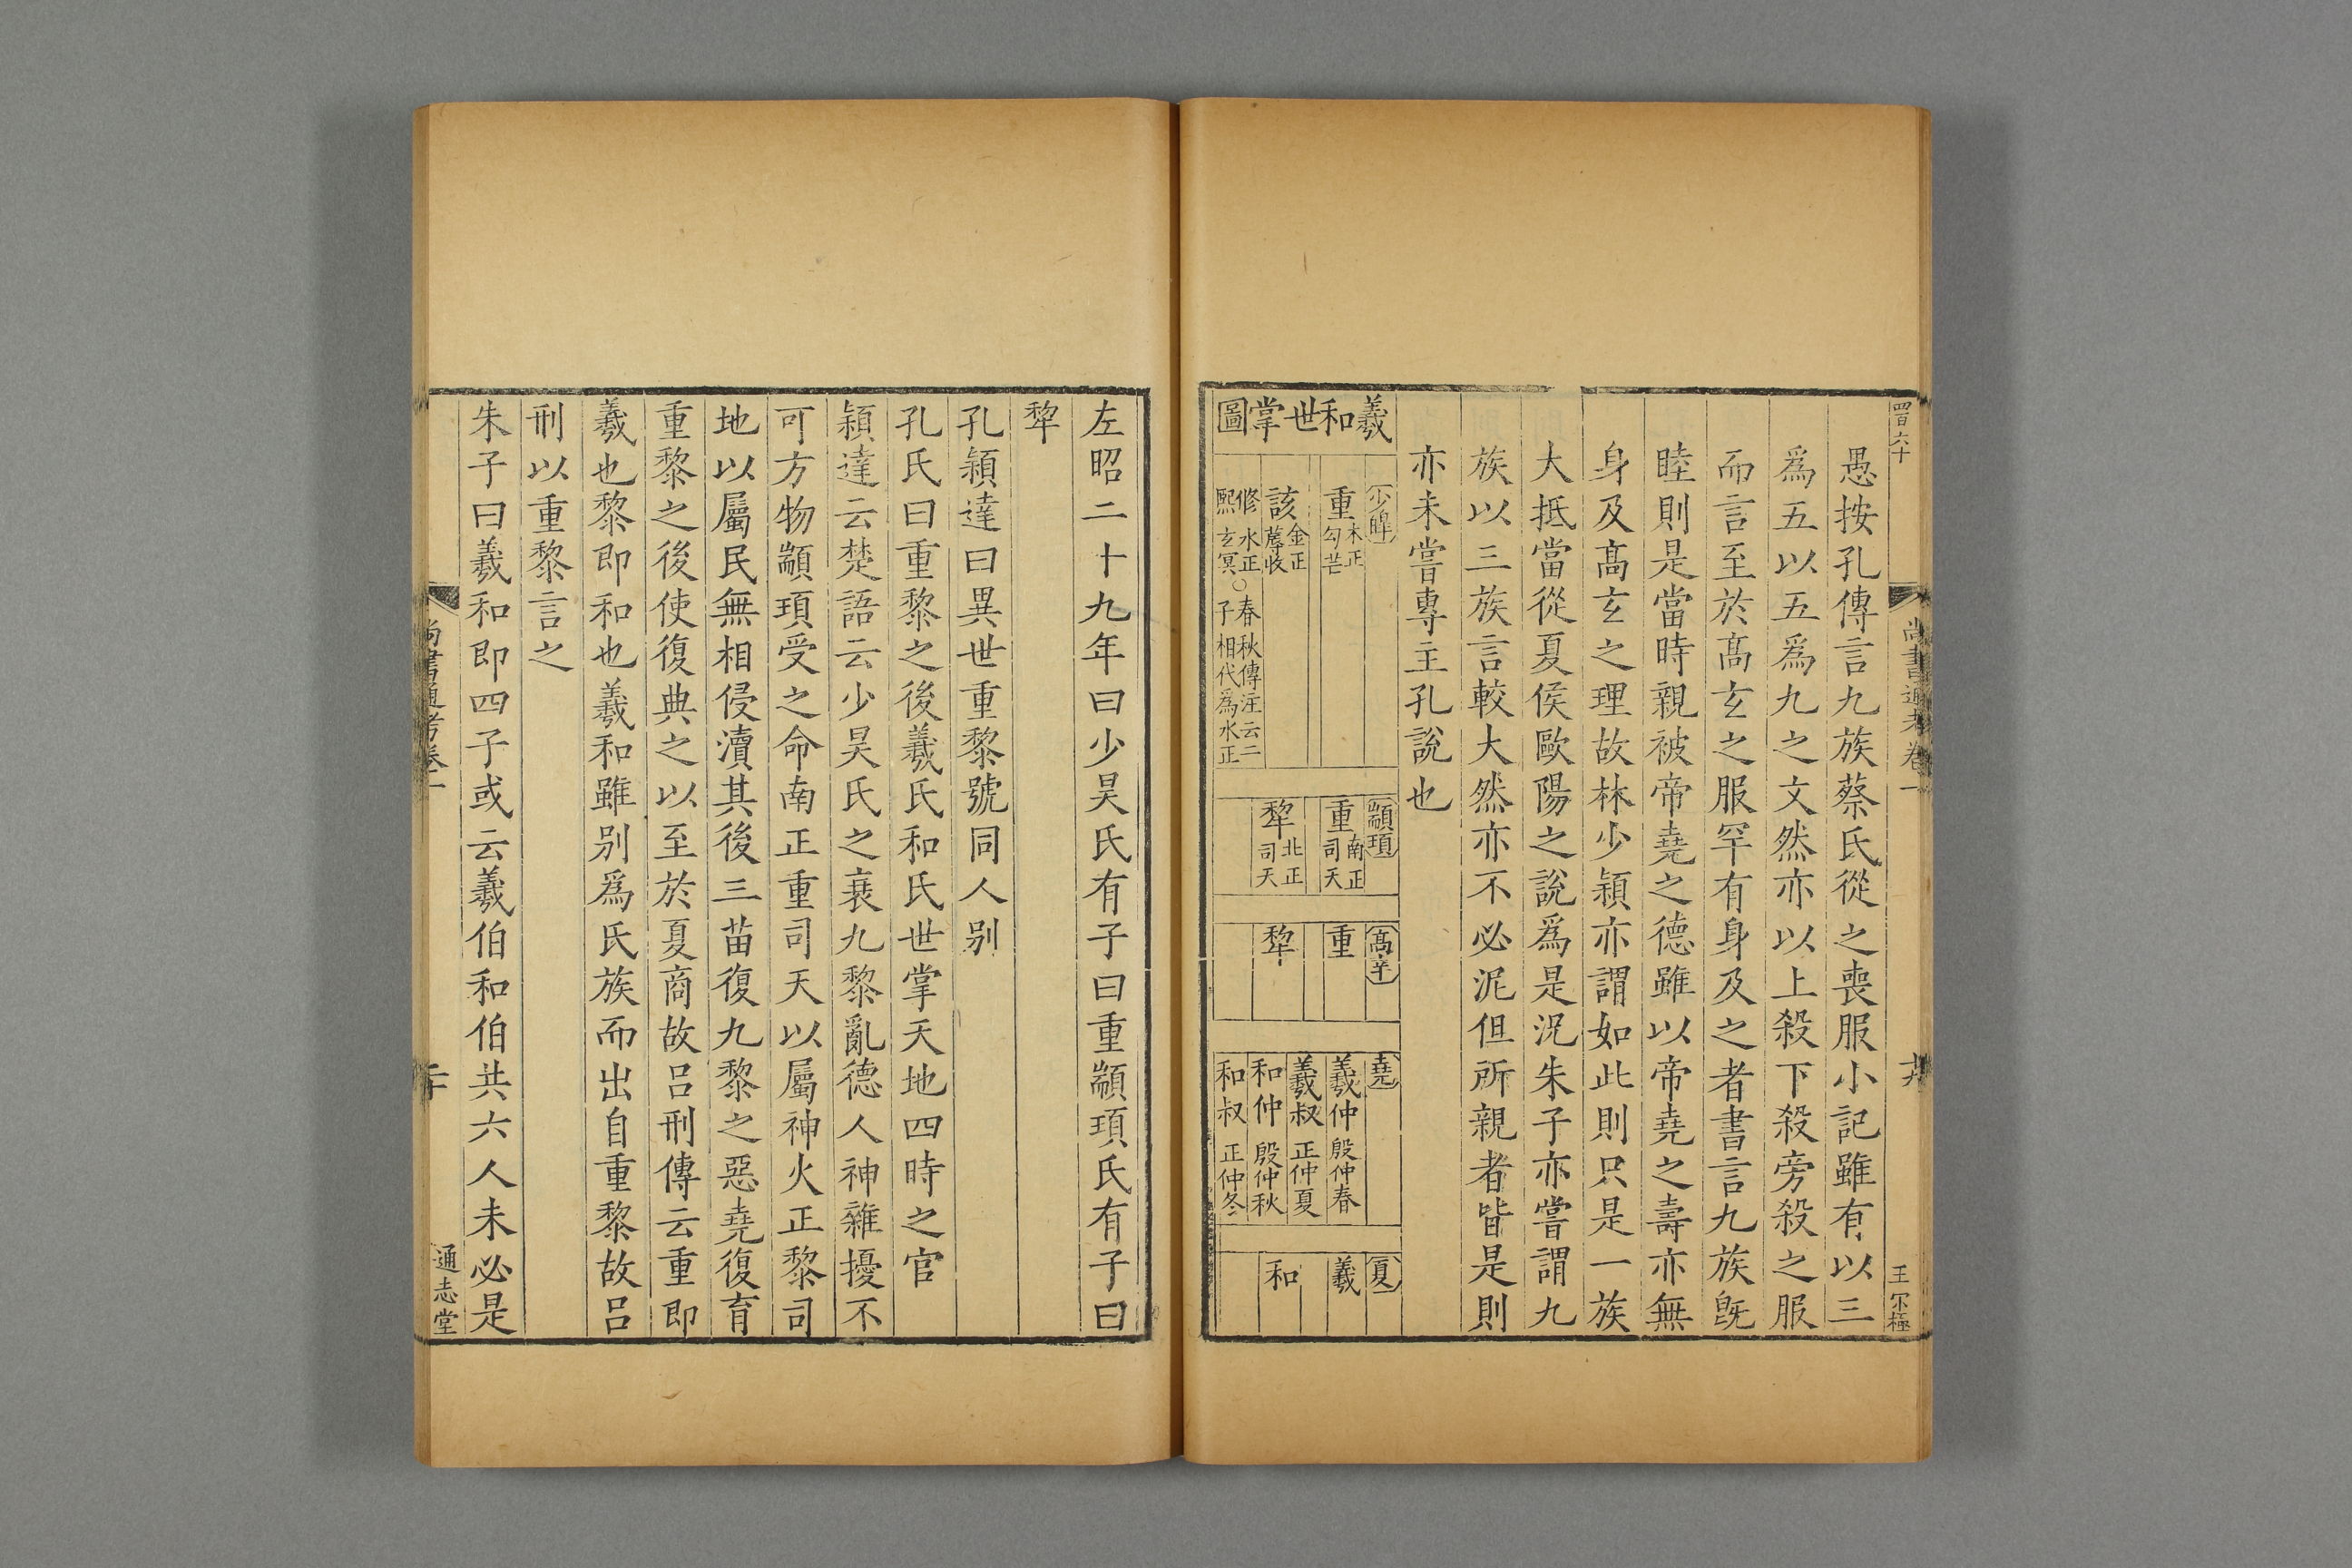 四百六十
尚書通考卷一
十九
王尔極
愚按孔傳言九族蔡氏從之喪服小記雖有以三
爲五以五爲九之文然亦以上殺下殺旁殺之服
而言至於髙玄之服罕有身及之者書言九族旣
睦則是當時親被帝堯之德雖以帝堯之壽亦無
身及髙玄之理故林少穎亦謂如此則只是一族
大抵當從夏侯歐陽之說爲是況朱子亦嘗謂九
族以三族言較大然亦不必泥但所親者皆是則
亦未嘗專主孔說也
羲和世掌圖
少皥
重 木正勾芒
該 金正蓐收
修熙 水正玄冥○春秋傳注云二子相代爲水正
顓頊
重 南正司天
犂 北正司天
髙辛
重
犂
堯
羲仲 殷仲春
羲叔 正仲夏
和仲 殷仲秋
和叔 正仲冬
夏
羲
和
左昭二十九年曰少昊氏有子曰重顓頊氏有子曰
犂
孔穎達曰異世重黎號同人別
孔氏曰重黎之後羲氏和氏世掌天地四時之官
穎達云楚語云少昊氏之衰九黎亂德人神雜擾不
可方物顓頊受之命南正重司天以屬神火正黎司
地以屬民無相侵瀆其後三苗復九黎之惡堯復育
重黎之後使復典之以至於夏商故呂刑傳云重即
羲也黎即和也羲和雖別爲氏族而出自重黎故呂
刑以重黎言之
朱子曰羲和即四子或云羲伯和伯共六人未必是
尚書通考卷一
二十
通志堂